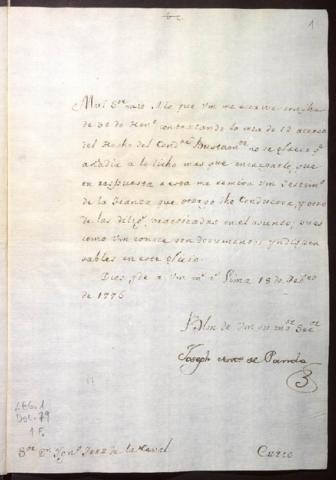 1
Mui Sor mio: A lo que Vm me escrive con fha
de 30 de Heno contextando la mia de 12 acerca
del Hecho del Condor Bustamte no se ofrece qe
añadir a lo dicho mas que encargarle, que
en respuesta a esta me remita Vm Testimo
de la fianza que otorgó dho Conductor, y otro
de las diligs practicadas en el asunto, pues
como Vm conoce son documentos yndispen
sables en este oficio.
Dios gde a Vm ms as Lima 18 de Febro
de 1776
BLM de Vm su mor Seror
Joseph Anto de Pando
Leg-1
Doc-79
1 F.
Sor Dn
Curco